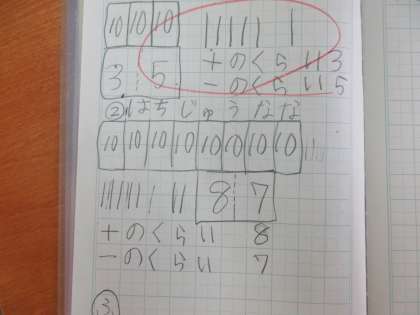 10 10 10
3 5
十のくらい3
一のくらい5
②はちじゅうなな
10 10 10 10 10 10 10 10
8 7
十のくらい 8
一のくらい 7
③